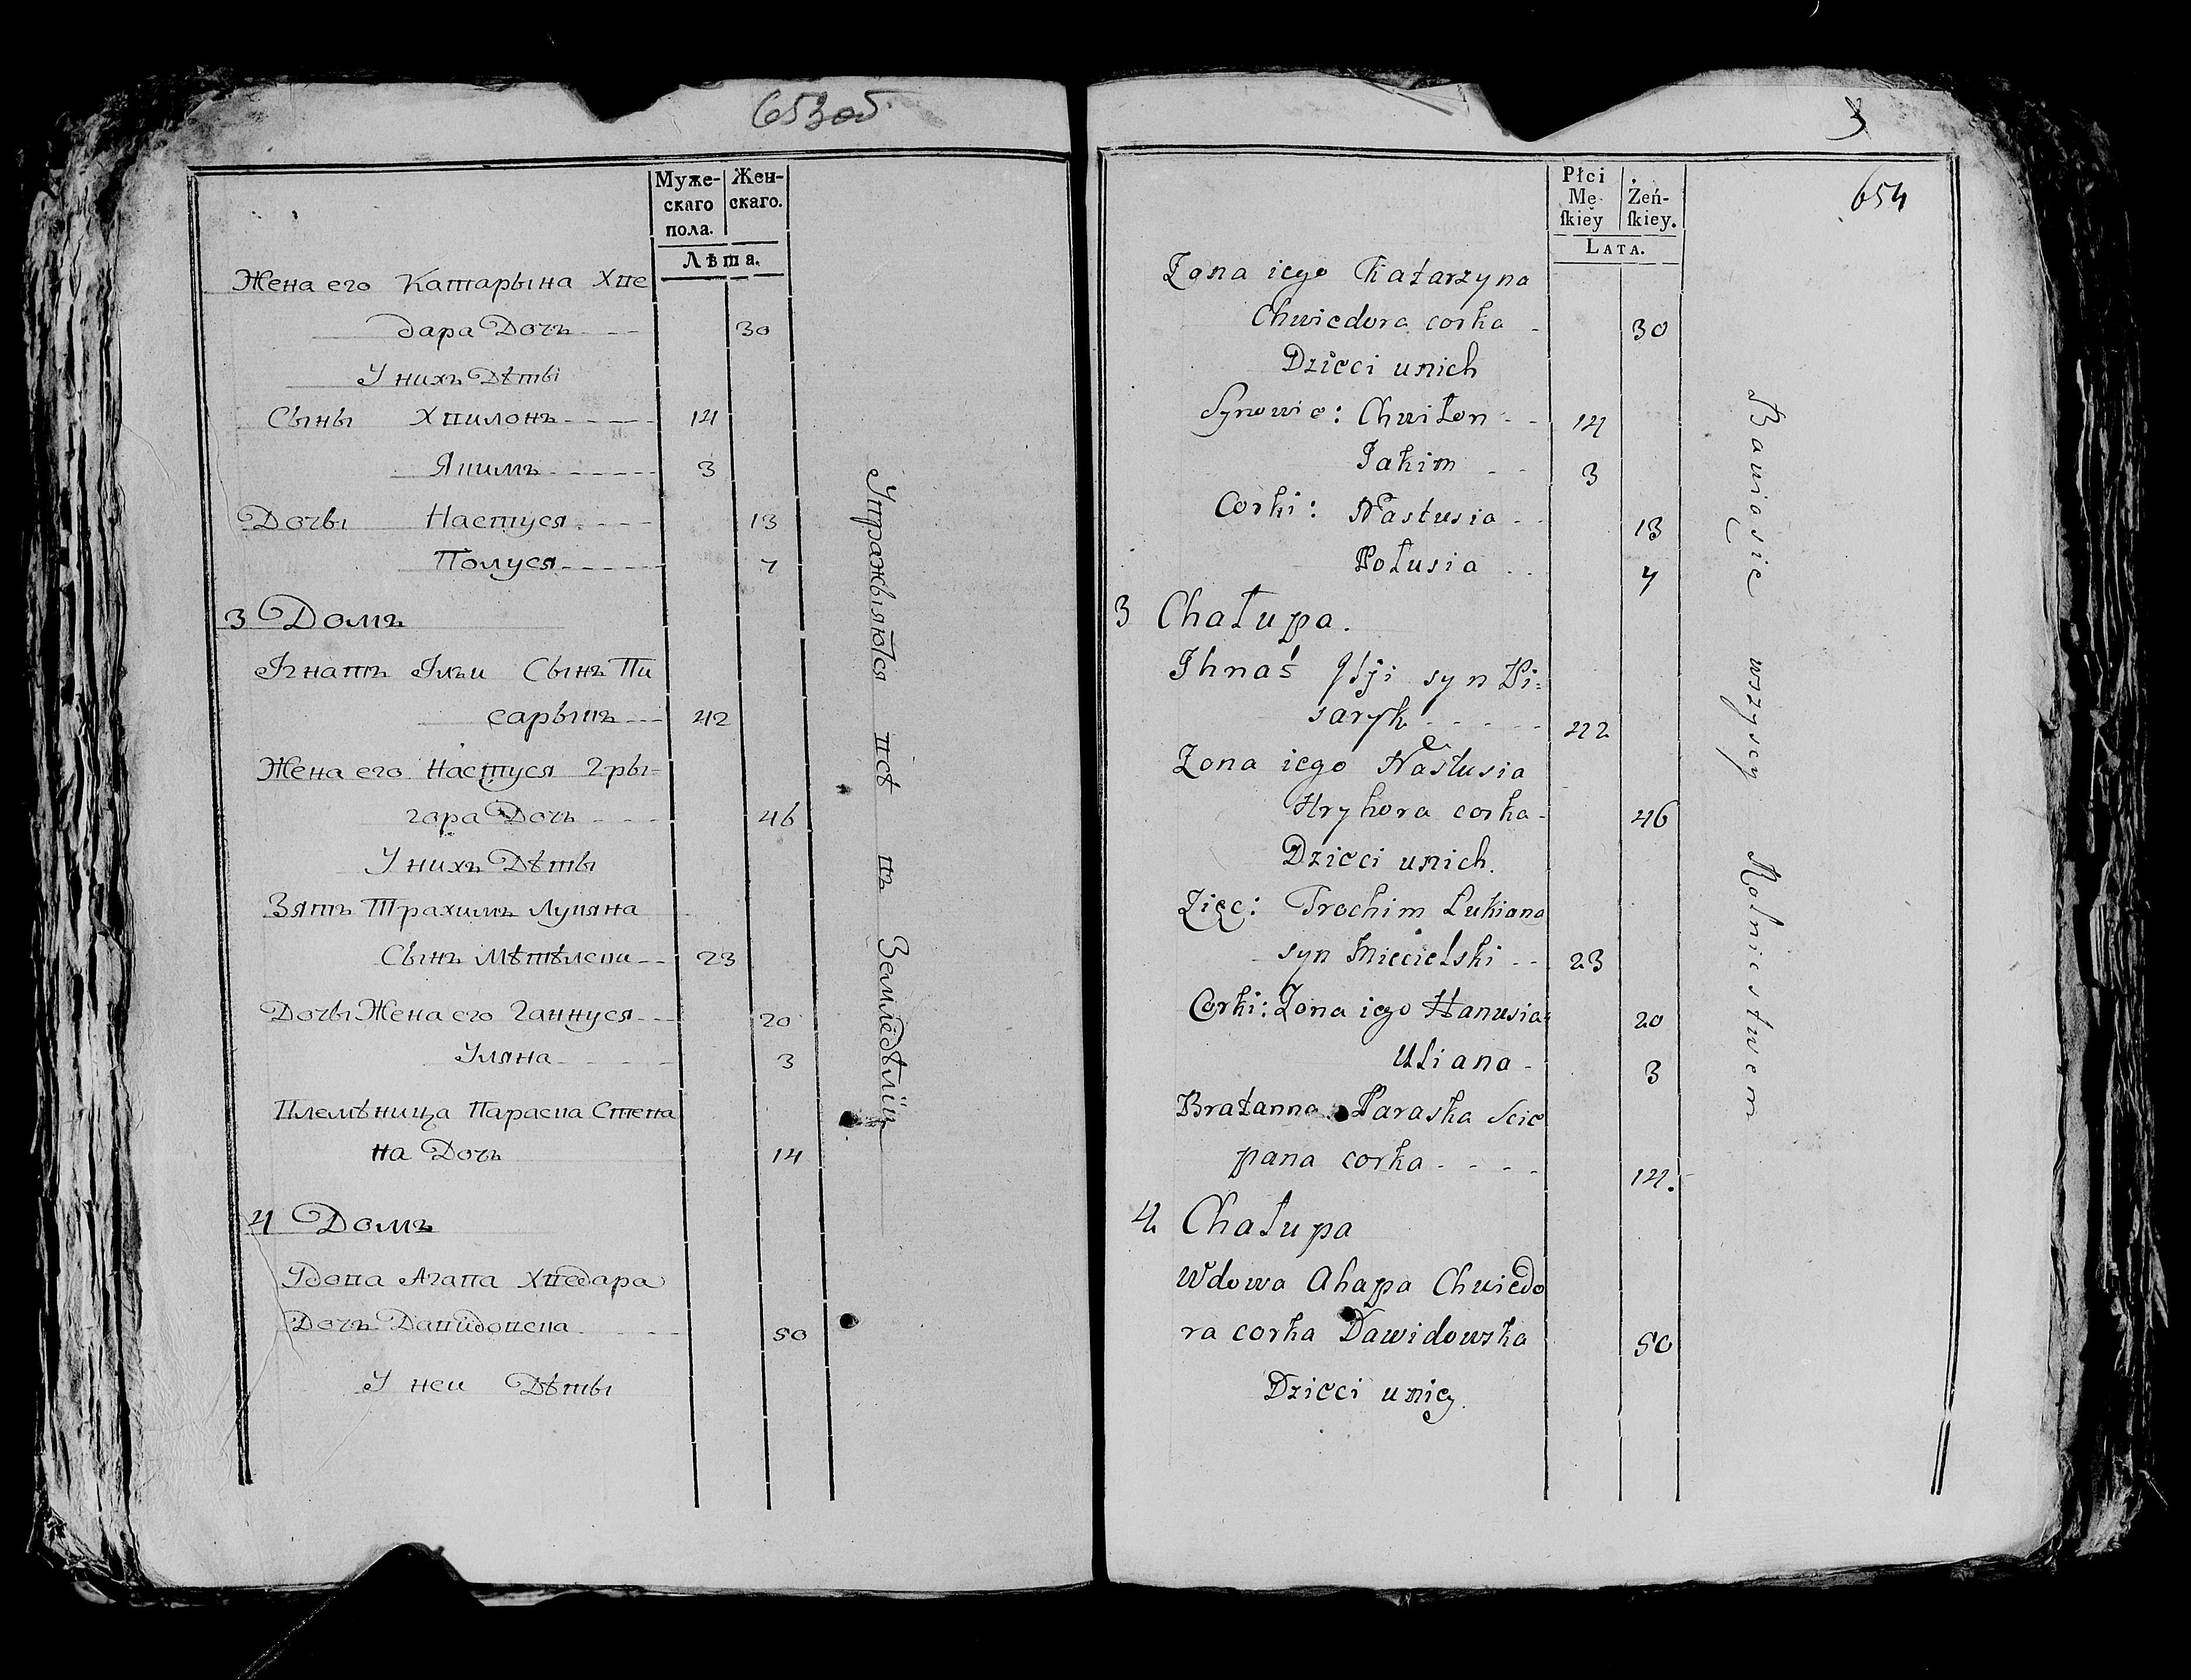 653об
Муже-
скаго
пола.
Жен-
скаго.
Лѣта.
Жена его Катарына Хве
дара Дочъ 30
У нихъ Дѣты
Сыны Хвилонъ 14
Якимъ 3
Дочьı Настуся 13
Полуся 7
3 Домъ
Ігнатъ Ільи Сынъ Пи
сарыкъ 42
Жена его Настуся Гры=
гора Дочъ 46
У нихъ Дѣты
Зятъ Трахимъ Лукяна
Сынъ Мѣтѣлски 23
Дочы Жена его Ганнуся 20
Уляна 3
Племѣница Параска Степа
на Дочъ 14
4 Домъ
Вдова Агапа Хведара
Дочъ Давидовска 50
У неи Дѣты
Упражвыяются всѣ въ Земледѣлии
3
654
Płci
Mę-
ſkiey
Żeń-
ſkiey.
LATA.
Zona iego Katarzyna
Chwiedora corka 30
Dzieci unich
Synowie: Chwiłon 14
Jakim 3
Corki: Nastusia 13
Połusia 7
3 Chałupa.
Ihnaś Ilji syn Pi=
saryk 42
Zona iego Nastusia
Hryhora corka 46
Dzieci unich.
Zięc: Trochim Łukiana
syn Miecielski 23
Corki: Zona iego Hanusia 20
Uliana 3
Bratanna Paraska Scie
pana corka 14.
4 Chałupa
Wdowa Ahapa Chwiedo
ra corka Dawidowska 50
Dzieci uniey.
Bawiąsie wszyscy Rolnictwem